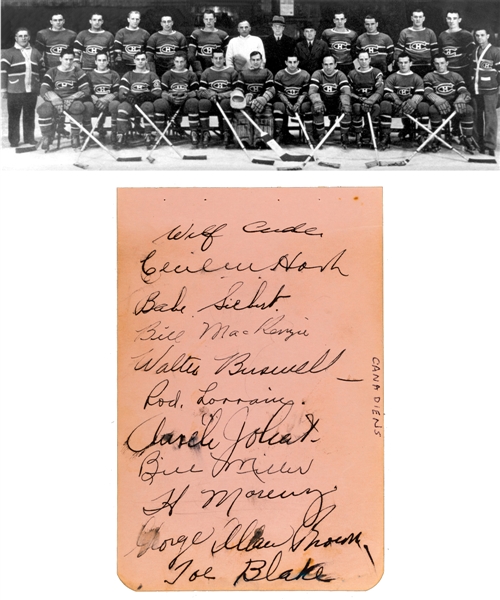 Wilf Cude
Cecil M. Hart
Babe Siebert.
Bill MacKenzie
Walter Buswell
Rod. Lorrain.
Aurele Joliat.
Bill Miller
H Morenz
George Allan Brown
Toe Blake
CANADIENS